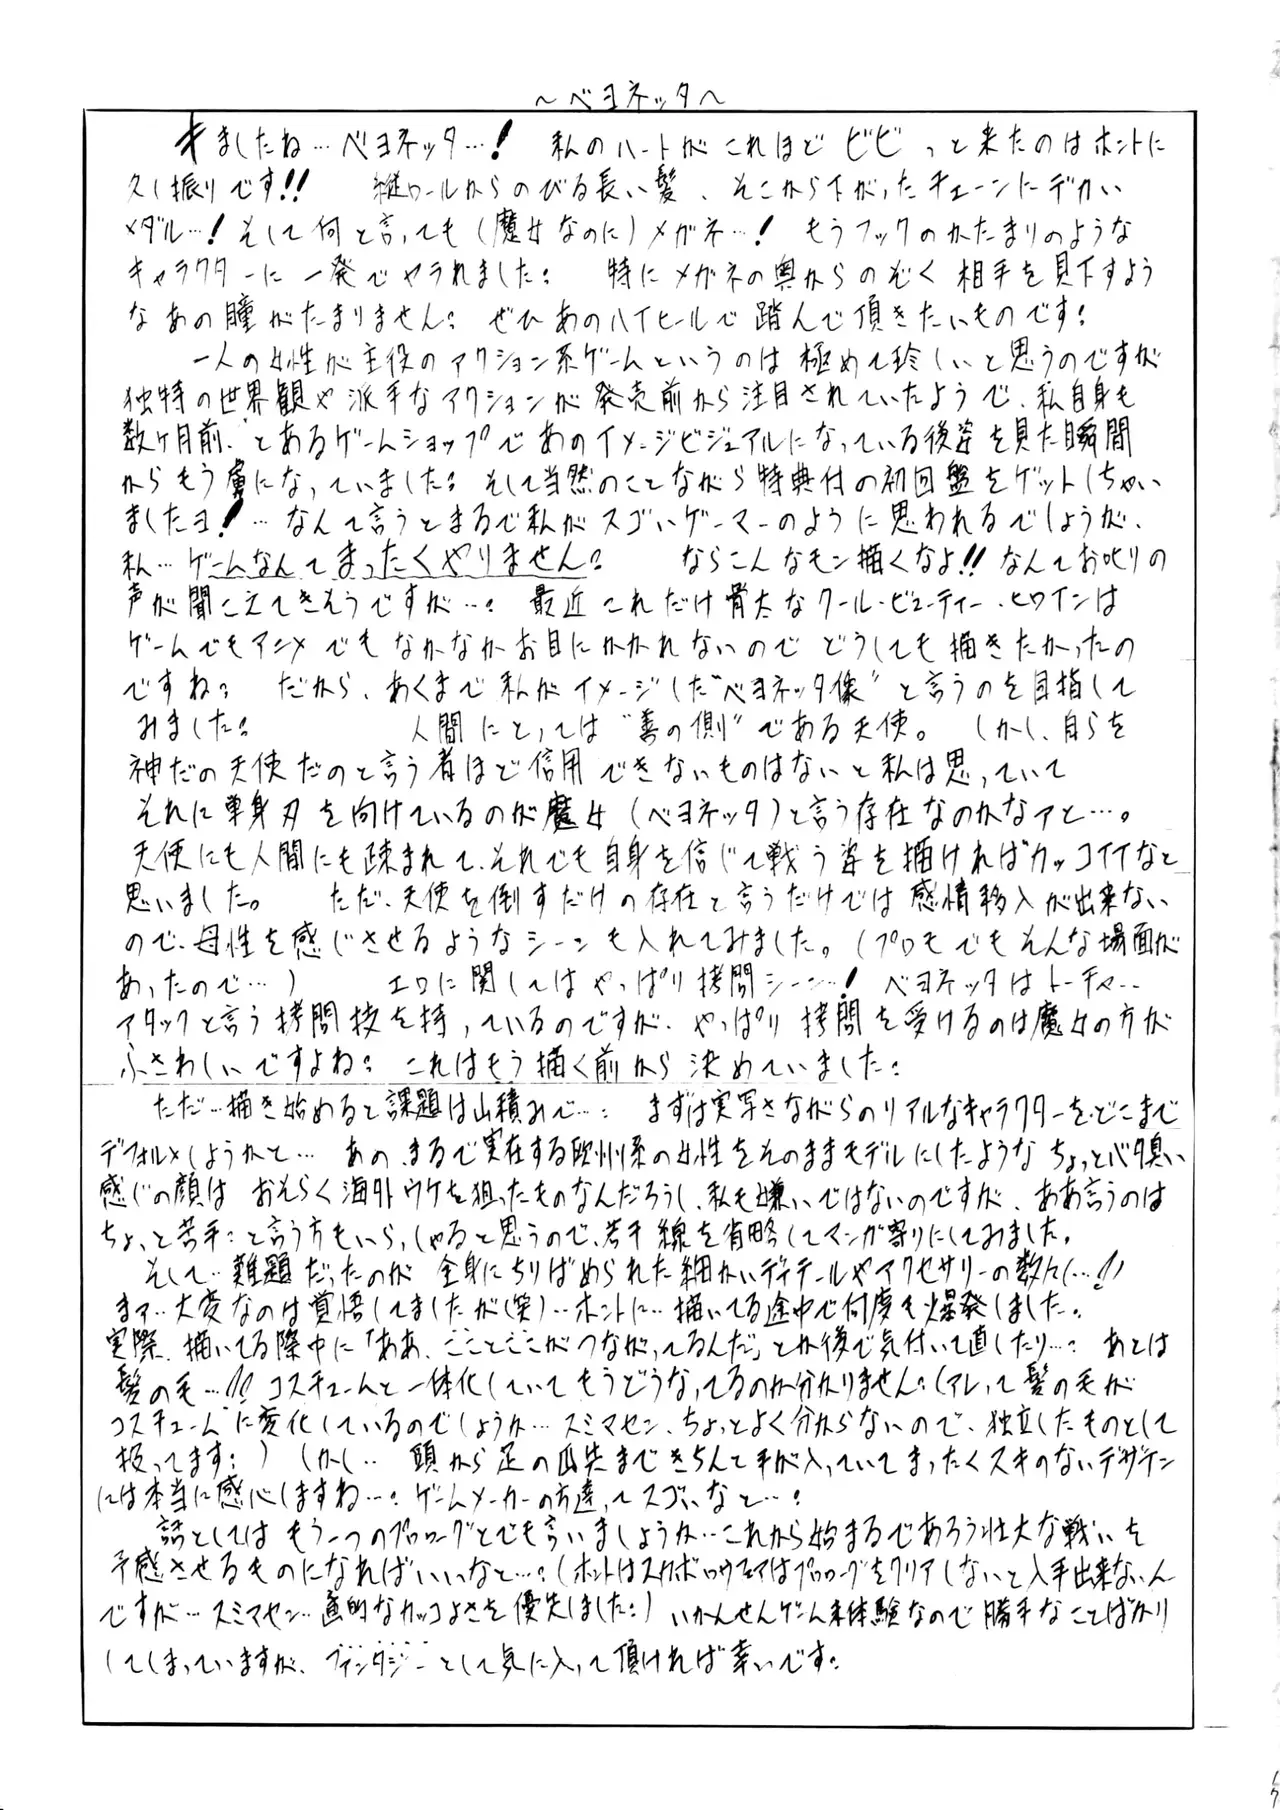 ～ベヨネッタ～
キましたね…ベヨネッタ…! 私のハートがこれほどビビっと来たのはホントに
久し振りです!! 縦ロールからのびる長い髪、そこから下がったチェーンにデカい
メダル…!そして何と言っても(魔女なのに)メガネ…! もうフックのかたまりのような
キャラクターに一発でヤラれました: 特にメガネの奥からのぞく相手を見下すよう
なあの瞳がたまりません: ぜひあのハイヒールで踏んで頂きたいものです:
一人の女性が主役のアクション系ゲームというのは極めて珍しいと思うのですが
独特の世界観や派手なアクションが発売前から注目されていたようで、私自身も
数ヶ月前、とあるゲームショップであのイメージビジュアルになっている後姿を見た瞬間
からもう虜になっていました: そして当然のことながら特典付の初回盤をゲットしちゃい
ましたヨ!…なんて言うとまるで私がスゴいゲーマーのように思われるでしょうが、
私…ゲームなんてまったくやりません: ならこんなモン描くなよ!!なんてお叱りの
声が聞こえてきそうですが…: 最近これだけ骨太なクール・ビューティー・ヒロインは
ゲームでもアニメでもなかなかお目にかかれないのでどうしても描きたかったの
ですね: だから、あくまで私がイメージした"ベヨネッタ像"と言うのを目指して
みました: 人間にとっては"善の側"である天使。 しかし、自らを
神だの天使だのと言う者ほど信用できないものはないと私は思っていて
それに単身刃を向けているのが魔女(ベヨネッタ)と言う存在なのかなァと…。
天使にも人間にも疎まれて、それでも自身を信じて戦う姿を描ければカッコイイなと
思いました。 ただ、天使を倒すだけの存在と言うだけでは感情移入が出来ない
ので、母性を感じさせるようなシーンも入れてみました。(プロモでもそんな場面が
あったので…) エロに関してはやっぱり拷問シーン…! ベヨネッタはトーチャー…
アタックと言う拷問技を持っているのですが、やっぱり拷問を受けるのは魔女の方が
ふさわしいですよね: これはもう描く前から決めていました:
ただ…描き始めると課題は山積みで…: まずは実写さながらのリアルなキャラクターを、どこまで
デフォルメしようかと… あの、まるで実在する欧州系の女性をそのままモデルにしたようなちょっとバタ臭い
感じの顔はおそらく海外ウケを狙ったものなんだろうし、私も嫌いではないのですが、ああ言うのは
ちょっと苦手:と言う方もいらっしゃると思うので、若干線を省略してマンガ寄りにしてみました。
そして…難題だったのが全身にちりばめられた細かいディテールやアクセサリーの数々…!!
まァ…大変なのは覚悟してましたが(笑)…ホントに…描いてる途中で何度も爆発しました。
実際、描いてる際中に「ああ、こことここがつながってるんだ」とか後で気付いて直したり…: あとは
髪の毛…!! コスチュームと一体化していてもうどうなってるのか分かりません:(アレって髪の毛が
コスチュームに変化しているのでしょうか…スミマセン、ちょっとよく分からないので、独立したものとして
扱ってます:) しかし… 頭から足の爪先まできちんと手が入っていてまったくスキのないデザイン
には本当に感心しますね…:ゲームメーカーの方達ってスゴいなと…:
話としてはもう一つのプロローグとでも言いましょうか…これから始まるであろう壮大な戦いを
予感させるものになればいいなと…:(ホントはスカボロウフェアはプロローグをクリアしないと入手出来ないん
ですが…スミマセン…画的なカッコよさを優先しました:) いかんせんゲーム未体験なので勝手なことばかり
してしまっていますが、ファンタジーとして気に入って頂ければ幸いです:
17